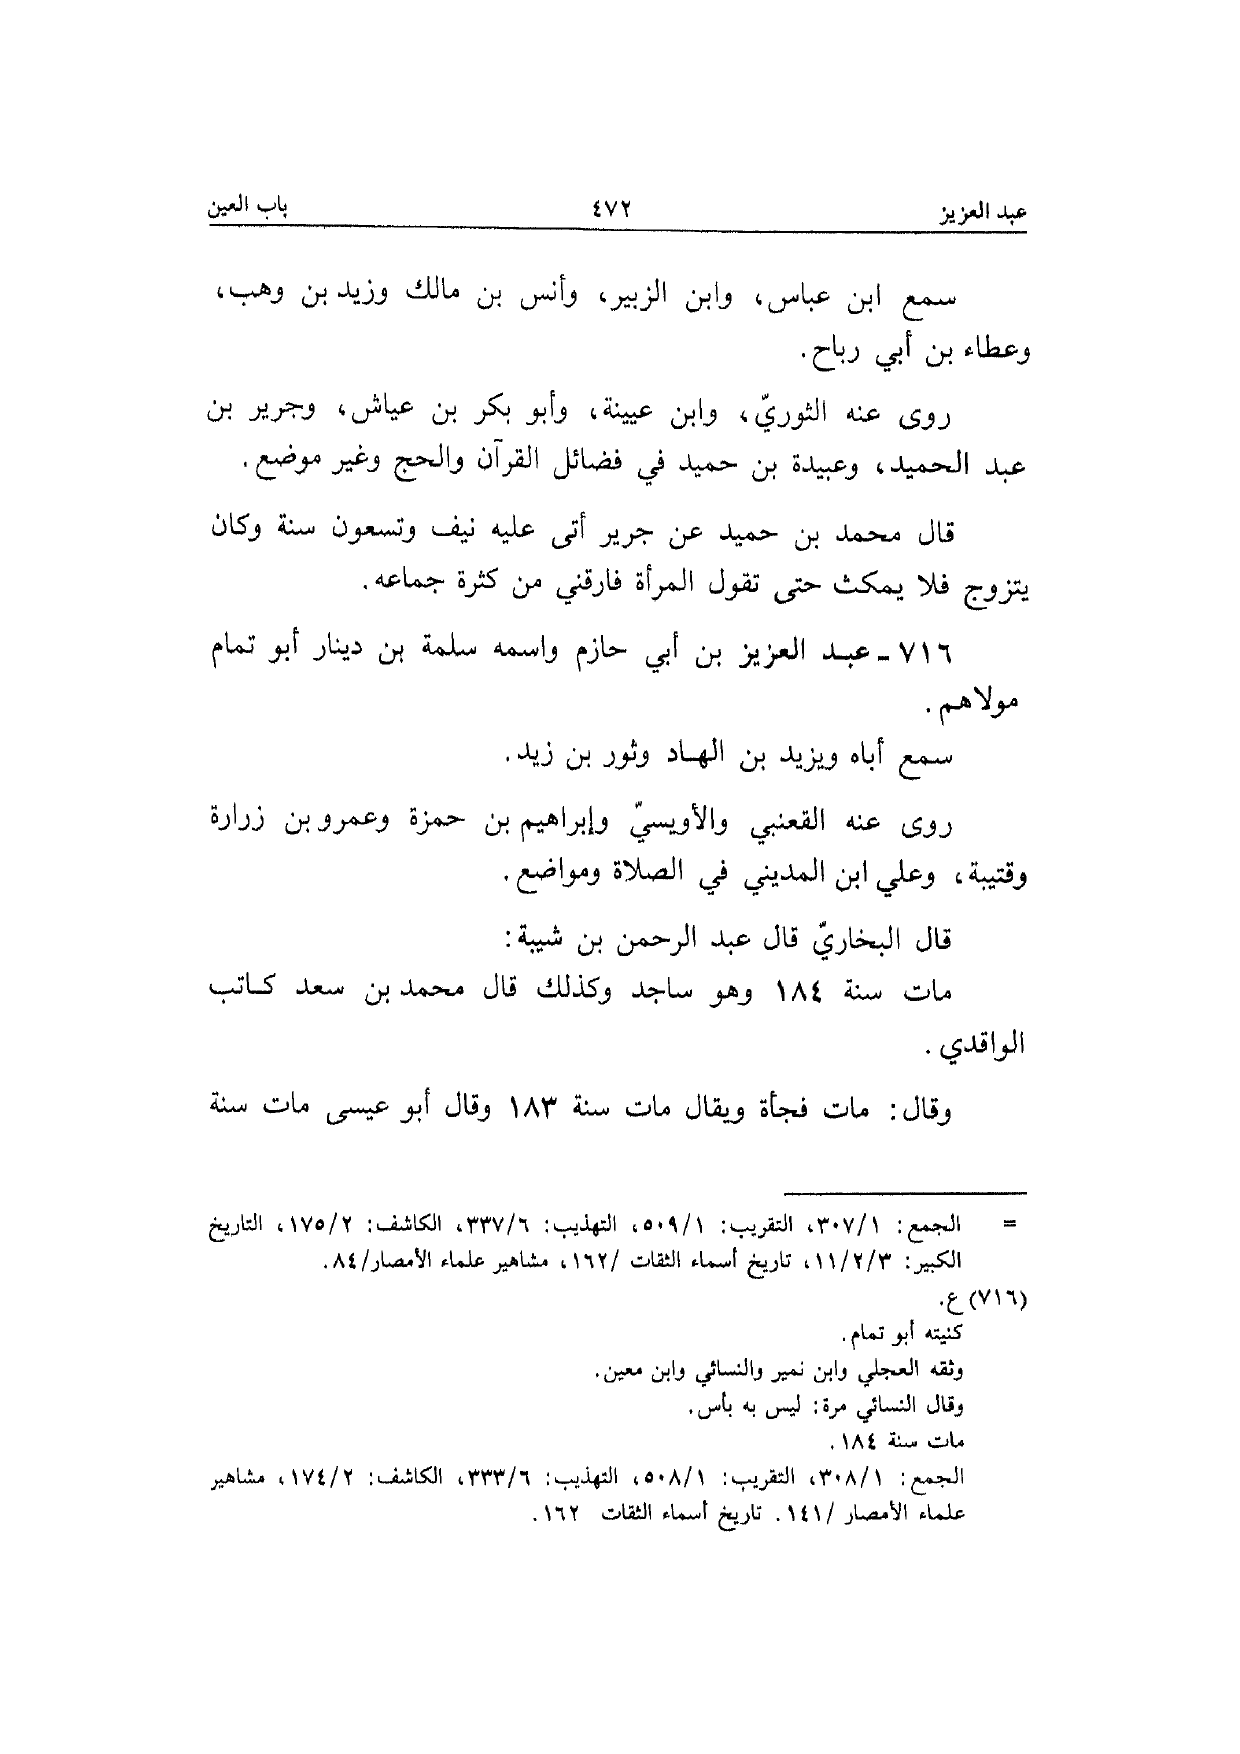 عبد العزيز ٤٧٢ باب العين
سمع ابن عباس، وابن الزبير، وأنس بن مالك وزيد بن وهب،
وعطاء بن أبي رباح.
روى عنه الثوريّ، وابن عيينة، وأبو بكر بن عياش، وجرير بن
عبد الحميد، وعبيدة بن حميد في فضائل القرآن والحج وغير موضع.
قال محمد بن حميد عن جرير أتى عليه نيف وتسعون سنة وكان
يتزوج فلا يمكث حتى تقول المرأة فارقني من كثرة جماعه.
٧١٦ - عبد العزيز بن أبي حازم واسمه سلمة بن دينار أبو تمام
مولاهم.
سمع أباه ويزيد بن الهاد وثور بن زيد.
روى عنه القعنبي والأويسيّ وإبراهيم بن حمزة وعمرو بن زرارة
وقتيبة، وعلي ابن المديني في الصلاة ومواضع.
قال البخاريّ قال عبد الرحمن بن شيبة:
مات سنة ١٨٤ وهو ساجد وكذلك قال محمد بن سعد كاتب
الواقدي.
وقال: مات فجأة ويقال مات سنة ١٨٣ وقال أبو عيسى مات سنة
= الجمع: ٣٠٧/١، التقريب: ٥٠٩/١، التهذيب: ٣٣٧/٦، الكاشف: ١٧٥/٢، التاريخ
الكبير: ١١/٢/٣، تاريخ أسماء الثقات /١٦٢، مشاهير علماء الأمصار/٨٤.
(٧١٦) ع.
كنيته أبو تمام.
وثقه العجلي وابن نمير والنسائي وابن معين.
وقال النسائي مرة: ليس به بأس.
مات سنة ١٨٤.
الجمع: ٣٠٨/١، التقريب: ٥٠٨/١، التهذيب: ٣٣٣/٦، الكاشف: ١٧٤/٢، مشاهير
علماء الأمصار /١٤١. تاريخ أسماء الثقات ١٦٢.